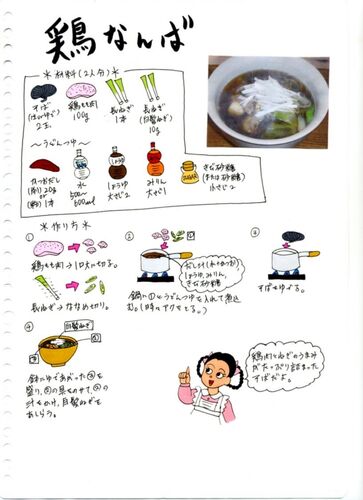 鶏なんば
*材料(2人分)*
そば
(はんゆで)
2玉
鶏もも肉
100g
長ねぎ
1本
長ねぎ
(白髪ねぎ)
10g
〜うどんつゆ〜
かつおだし
(削り)20g
or
(粉)1本
水
500ml
しょうゆ
大さじ2
みりん
大さじ1
きな砂糖
(または砂糖)
小さじ2
*作り方*
①
鶏もも肉→1口大に切る。
長ねぎ→ななめ切り。
②
だし汁(水+かつお)
しょうゆ,みりん,
きな砂糖
鍋に①とうどんつゆを入れて煮込
む。(時々アクをとる。)
③
そばをゆでる。
④
白髪ねぎ
鉢にゆであがった③を
盛り、②の具をのせて、②の
汁をかけ、白髪ねぎを
あしらう。
鶏肉とねぎのうまみ
がたっぷり詰まった
そばだよ。